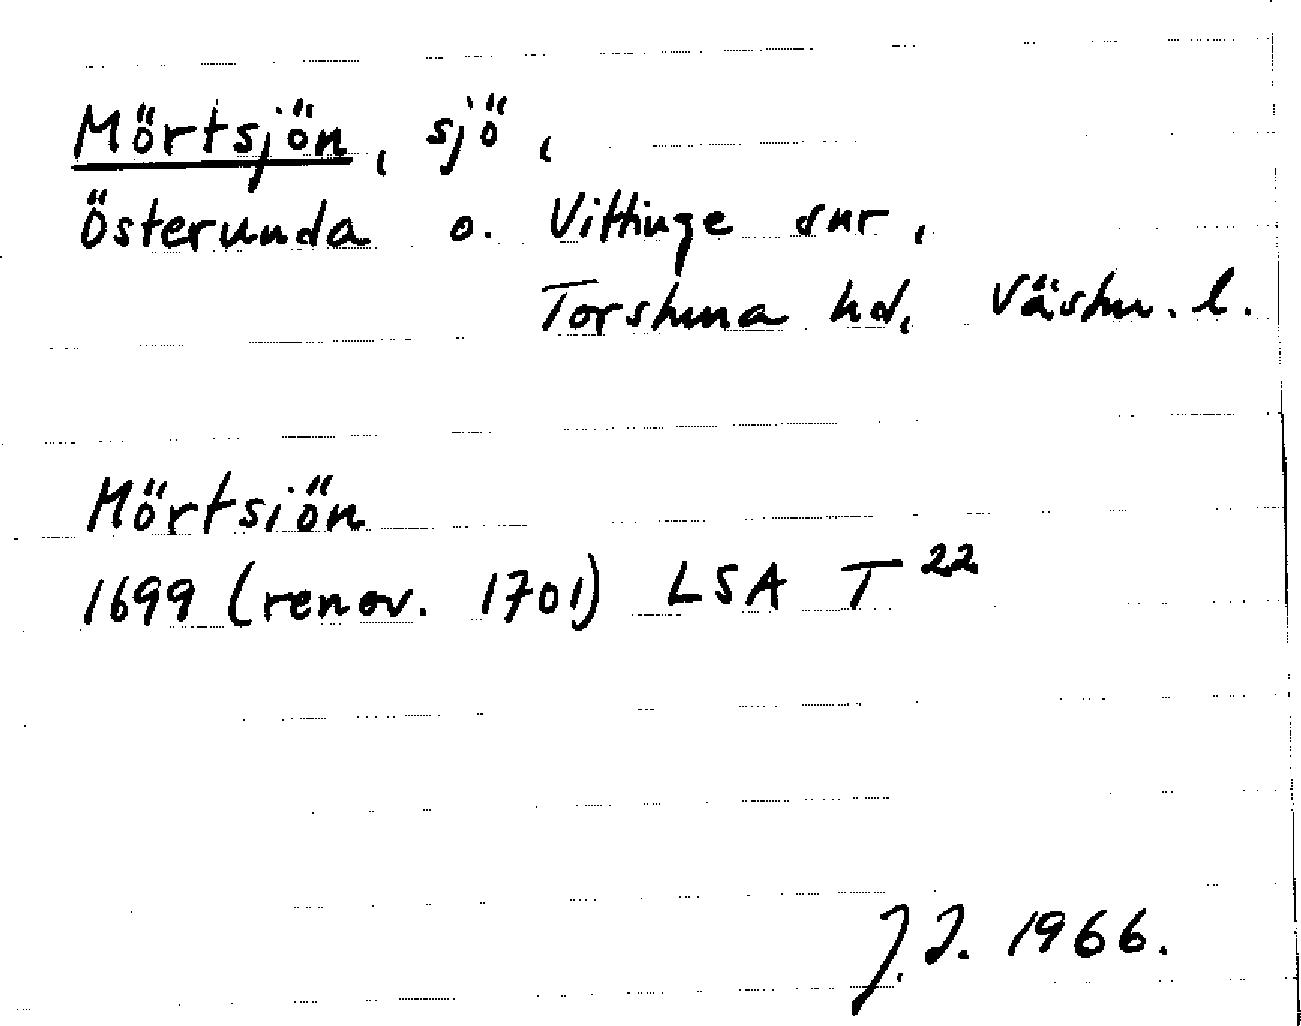 Mörtsjön, sjö,
Österunda o. Vittinge snr,
Torstuna hd, Västm. l.
Mörtsiön
1699 (renov. 1701) LSA T 22
J.J. 1966.